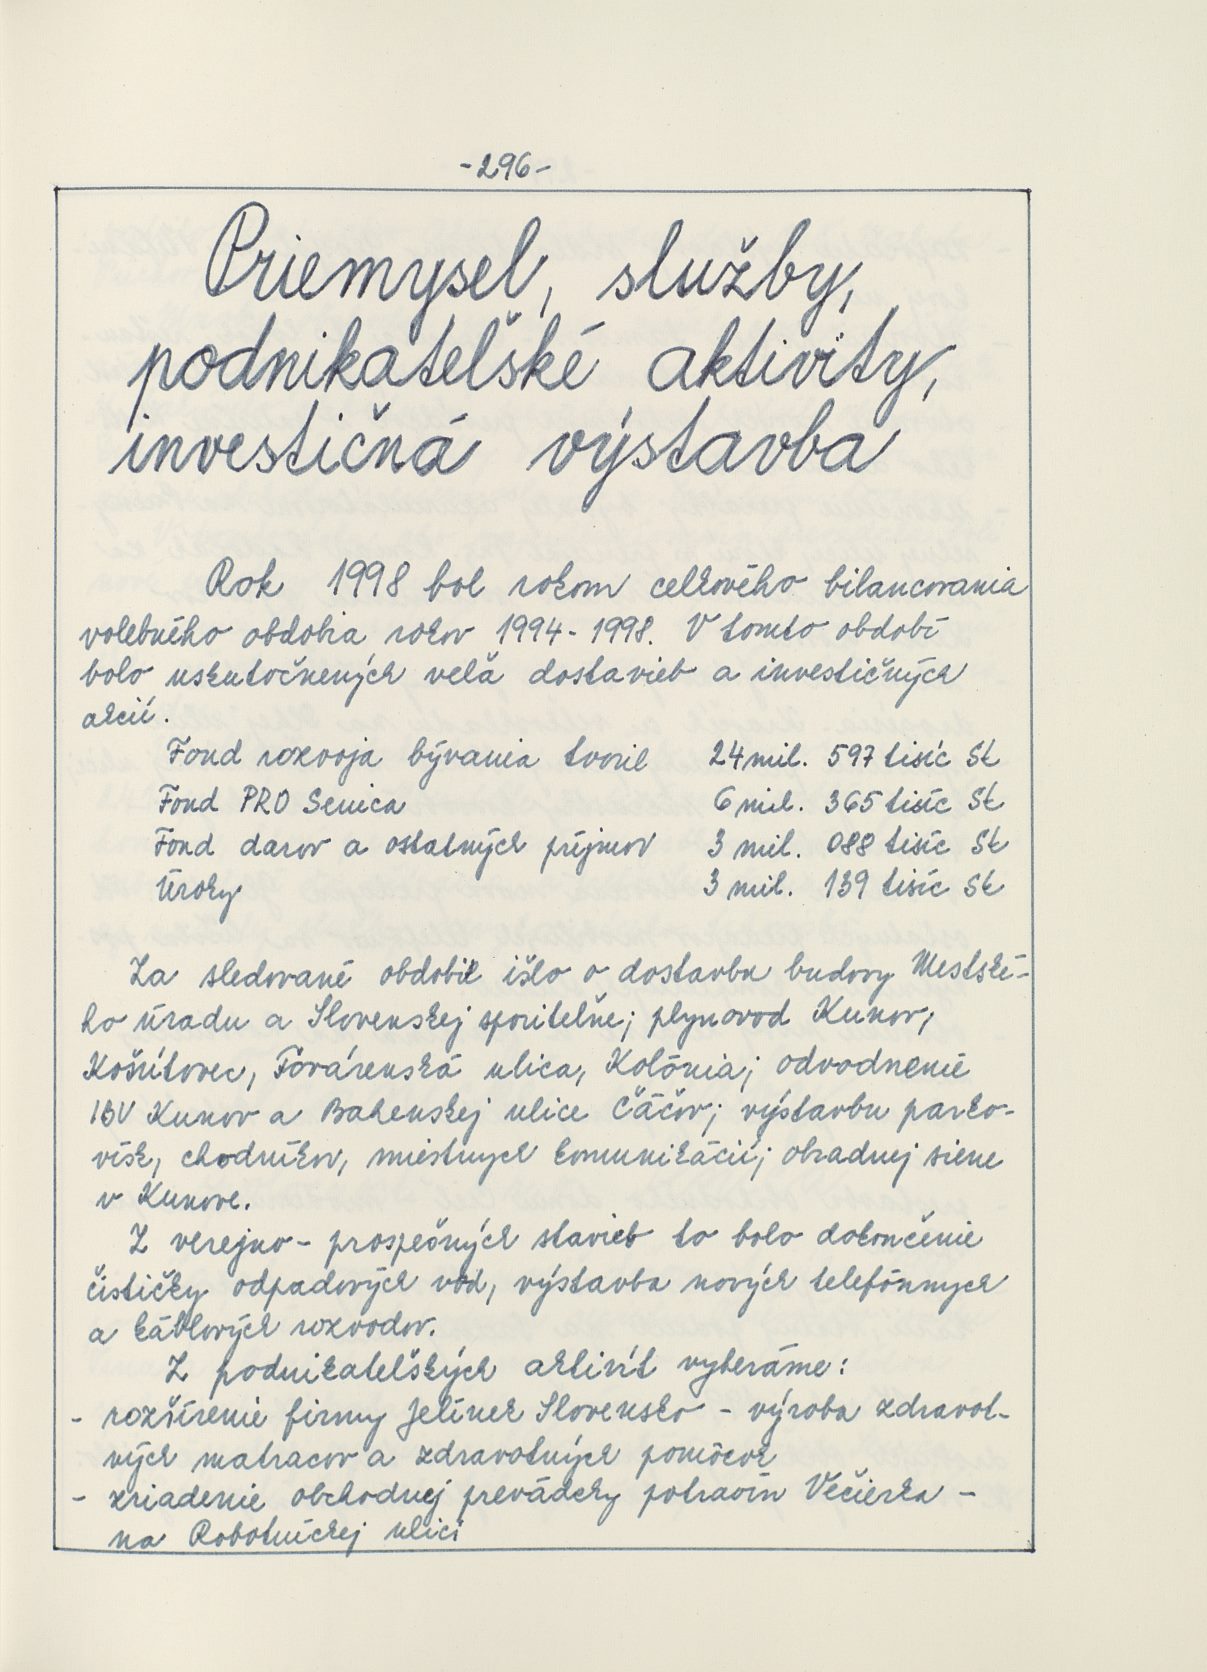 -296-
Priemysel, služby,
podnikateľské aktivity,
investičná výstavba
Rok 1998 bol rokom celkového bilancovania
volebného obdobia rokov 1994-1998. V tomto období
bolo uskutočnených veľa dostavieb a investičných
akcií.
Fond rozvoja bývania tvoril 24 mil. 597 tisíc Sk
Fond PRO Senica 6 mil. 365 tisíc Sk
Fond darov a ostatných príjmov 3 mil. 088 tisíc Sk
Úroky 3 mil. 139 tisíc Sk
Za sledované obdobie išlo o dostavbu budovy Mestské-
ho úradu a Slovenskej sporiteľne; plynovod Kunov,
Košútovec, Továrenská ulica, Kolónia; odvodnenie
IBV Kunov a Bahenskej ulice Čáčov; výstavbu parko-
vísk, chodníkov, miestnych komunikácií; obradnej siene
v Kunove.
Z verejno-prospešných stavieb to bolo dokončenie
čističky odpadových vôd, výstavba nových telefónnych
a káblových rozvodov.
Z podnikateľských aktivít vyberáme:
- rozšírenie firmy Jelínek Slovensko - výroba zdravot-
ných matracov a zdravotných pomôcok
- zriadenie obchodnej prevádzky potravín Večierka -
na Robotníckej ulici